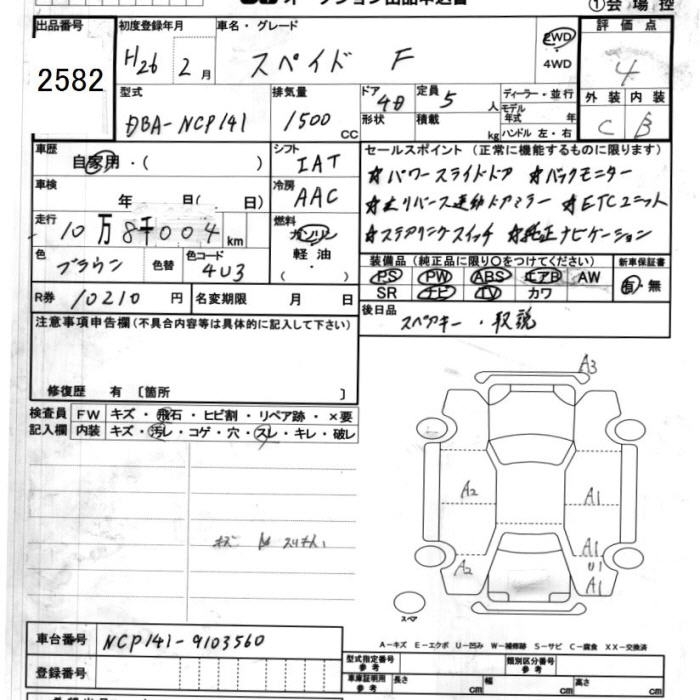 オークション出品申込書
①会場控
出品番号
2582
初度登録年月
H26 2月
車名・グレード
スペイド F
2WD
4WD
評価点
4
外装 内装
C B
型式
DBA-NCP141
排気量
1500 cc
ドア 4D
形状
定員 5 人
積載 kg
ディーラー・並行
モデル年式 年
ハンドル 左・右
車歴
自家用・( )
シフト
IAT
車検
年 日( 日)
冷房
AAC
走行
10万8千004 km
燃料
ガソリン
軽油
・( )
色
ブラウン
色替
色コード
4U3
R券 10210 円
名変期限 月 日
セールスポイント(正常に機能するものに限ります)
☆パワースライドドア ☆バックモニター
☆リバース連動ドアミラー ☆ETCユニット
☆ステアリングスイッチ ☆純正ナビゲーション
装備品(純正品に限り○をつけてください)
PS PW ABS エアB AW
SR ナビ TV カワ
新車保証書
有・無
後日品
スペアキー・取説
注意事項申告欄(不具合内容等は具体的に記入して下さい)
修復歴 有 〔箇所 〕
検査員記入欄
FW キズ・飛石・ヒビ割・リペア跡・×要
内装 キズ・汚レ・コゲ・穴・スレ・キレ・破レ
A3
A2 A1
A1
A2 U1
A1
スペア
A-キズ E-エクボ U-凹み W-補修跡 S-サビ C-腐食 XX-交換済
車台番号 NCP141-9103560
登録番号
型式指定番号 参考
類別区分番号 参考
車庫証明用 参考 長さ cm 幅 cm 高さ cm